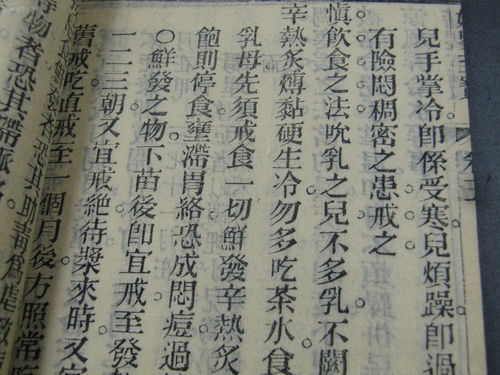 兒手掌冷卽係受寒兒煩躁卽過
有險悶稠密之患戒之
愼飲食之法吮乳之兒不多乳不闕
辛熱炙煿黏硬生冷勿多吃茶水食
乳母先須戒食一切鮮發辛熱炙
飽則停食壅滯胃絡恐成悶痘過
〇鮮發之物下苗後卽宜戒至發
一二三朝又宜戒絶待漿來時又
舊戒吃直戒至一個月後方照常
物者恐其滯
鮮發者恐其助毒爲虐